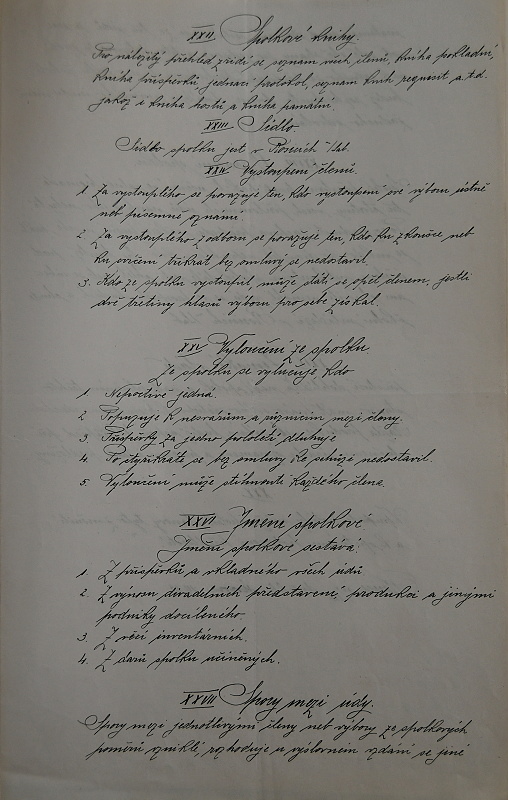 XXII Spolkové knihy.
Pro náležitý přehled zřídí se seznam všech členů, kniha pokladní,
kniha příspěvků, jednací protokol, seznam knih, requisit a.t.d.
jakož i kniha hostů a kniha památní.
XXIII Sídlo.
Sídlo spolku jest v
XXIV Vystoupení členů.
1. Za vystouplého se považuje ten, kdo vystoupení své výboru ústně
neb písemně oznámí.
2. Za vystouplého z odboru se považuje ten, kdo ku zkoušce neb
ku cvičení třikrát bez omluvy se nedostavil
3. Kdo ze spolku vystoupil, může státi se opět členem, jestli
dvě třetiny hlasů výboru pro sebe získal.
XXV Vyloučení ze spolku.
Ze spolku se vylučuje, kdo
1. Nepoctivě jedná.
2. Popuzuje k nesvárům a různicím mezi členy.
3. Příspěvky za jedno pololetí dluhuje
4. Po čtyřikráte se bez omluvy ke schůzi nedostavil.
5. Vyloučení může stihnouti každého člena.
XXVI Jmění spolkové
Jmění spolkové sestává:
1. Z příspěvků a vkladného všech údů
2. Z výnosu divadelních představení, produkcí a jinými
podniky docíleného.
3. Z věcí inventárních.
4. Z darů spolku učiněných.
XXVII Spory mezi údy.
Spory mezi jednotlivými členy neb výbory ze spolkových
poměrů vzniklé, rozhoduje u výslovném vzdání se jiné